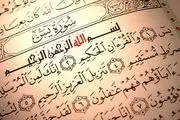 سُورَةُ يسٓ
بِسْمِ ٱللَّهِ ٱلرَّحْمَٰنِ ٱلرَّحِيمِ
يسٓ وَٱلْقُرْءَانِ ٱلْحَكِيمِ إِنَّكَ لَمِنَ
مُّسْتَقِيمٍ تَنزِيلَ ٱلْعَزِيزِ ٱلرَّحِيمِ
ءَابَآؤُهُمْ فَهُمْ غَٰفِلُونَ